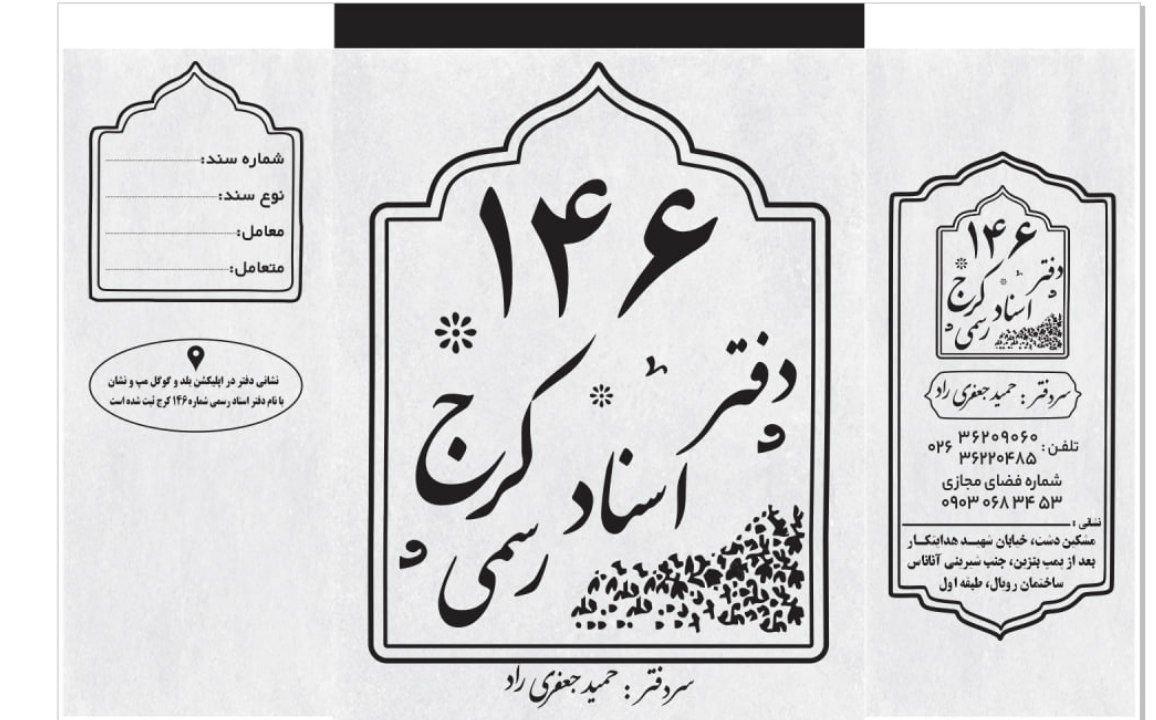 شماره سند:
نوع سند:
معامل:
متعامل:
نشانی دفتر در اپلیکشن بلد و گوگل مپ و نشان
با نام دفتر اسناد رسمی شماره ۱۴۶ کرج ثبت شده است
۱۴۶
دفتر
اسناد رسمی
کرج
سردفتر : حمید جعفری راد
۱۴۶
دفتر
اسناد رسمی
کرج
سردفتر : حمید جعفری راد
تلفن : ۳۶۲۰۹۰۶۰ ۰۲۶
۳۶۲۲۰۴۸۵
شماره فضای مجازی
۰۹۰۳ ۰۶۸ ۳۴ ۵۳
نشانی :
مشکین دشت، خیابان شهید هدایتکار
بعد از پمپ بنزین، جنب شیرینی آناناس
ساختمان رویال، طبقه اول